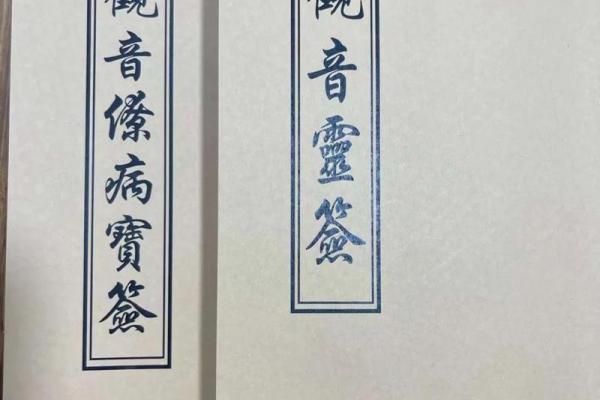 觀音靈簽
觀音僚病寶簽